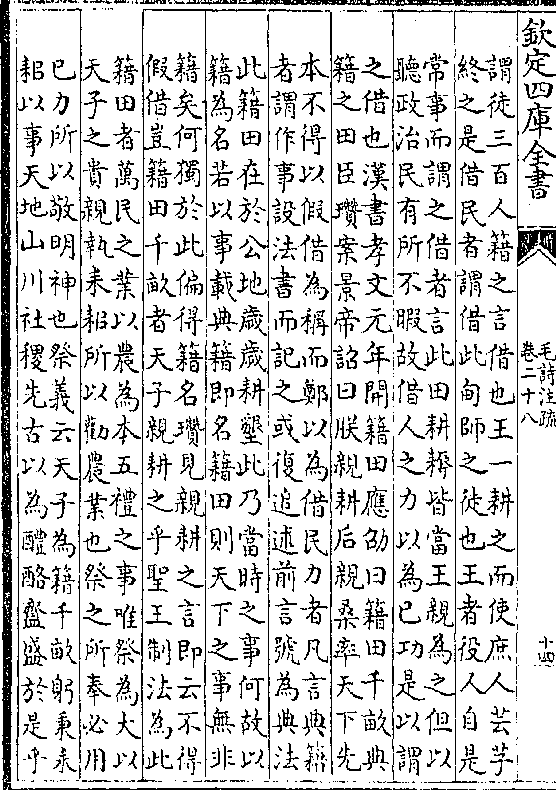 欽定四庫全書
毛詩注疏
卷二十八
十四
謂徒三百人籍之言借也王一耕之而使庶人芸芓
終之是借民者謂借此甸師之徒也王者役人自是
常事而謂之借者言此田耕耨皆當王親為之但以
聽政治民有所不暇故借人之力以為己功是以謂
之借也漢書孝文元年開籍田應劭曰籍田千畝典
籍之田臣瓚案景帝詔曰朕親耕后親桑率天下先
本不得以假借為稱而鄭以為借民力者凡言典籍
者謂作事設法書而記之或復追述前言號為典法
此籍田在於公地歲歲耕墾此乃當時之事何故以
籍為名若以事載典籍即名籍田則天下之事無非
籍矣何獨於此偏得籍名瓚見親耕之言即云不得
假借豈籍田千畝者天子親耕之乎聖王制法為此
籍田者萬民之業以農為本五禮之事唯祭為大以
天子之貴親執耒耜所以勸農業也祭之所奉必用
已力所以敬明神也祭義云天子為籍千畝躬秉耒
耜以事天地山川社稷先古以為醴酪齍盛於是乎